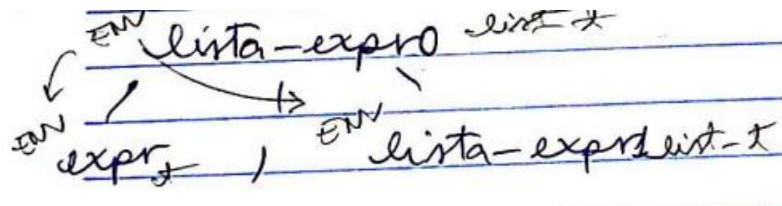 ENV lista-expr0 list-t
ENV expr t , ENV lista-expr1 list-t